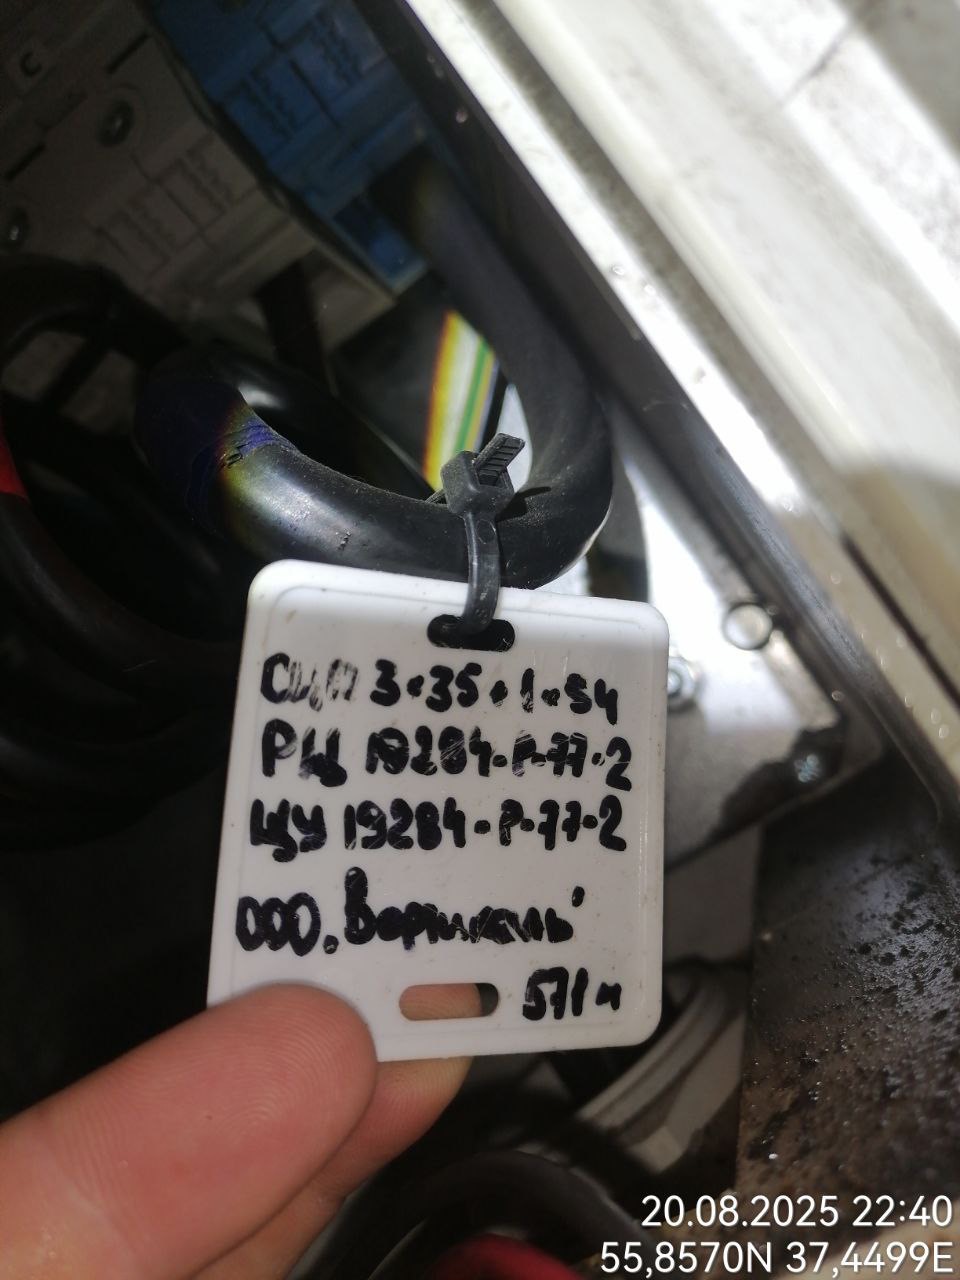 Сип 3×35+1×54
РЩ 19284-Р-77-2
ЩУ 19284-Р-77-2
ООО "Вертикаль"
571м
20.08.2025 22:40
55,8570N 37,4499E